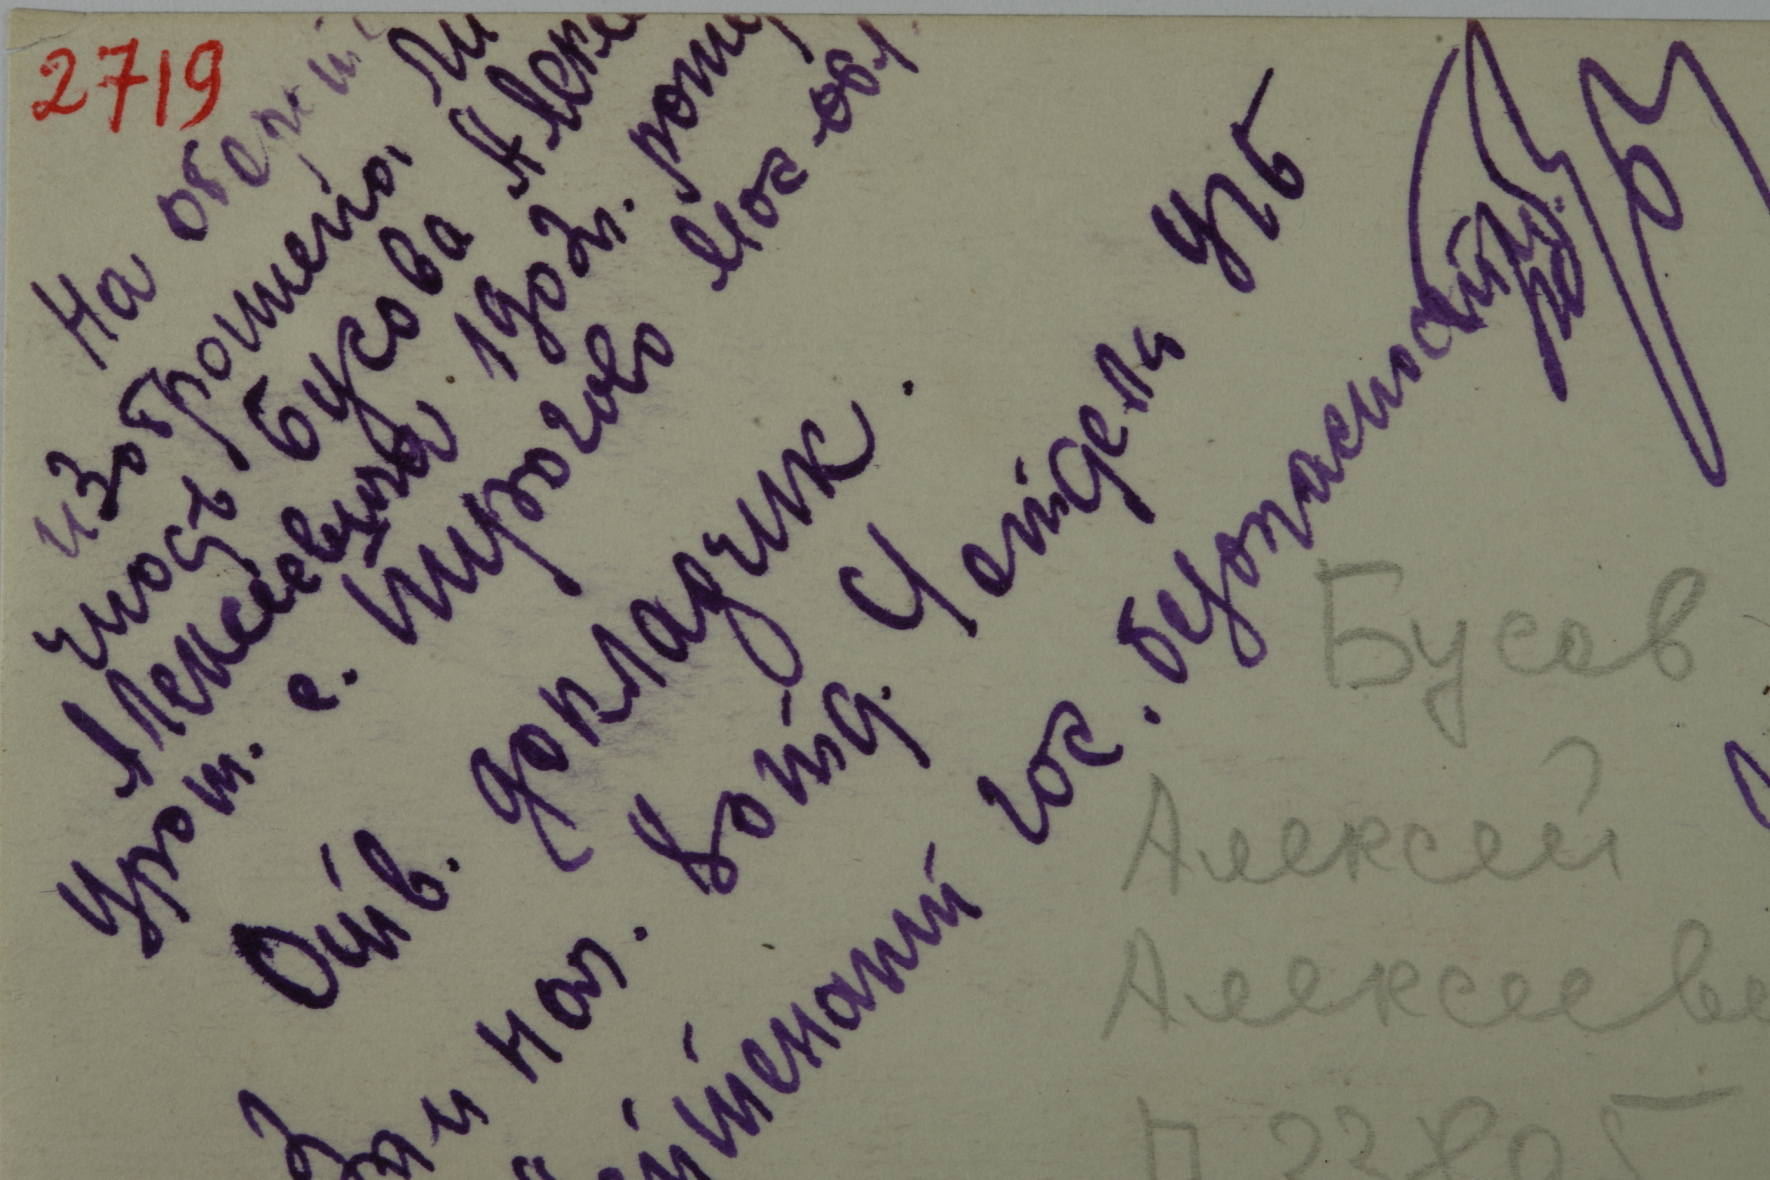 2719
На оберн
изображена ли
ность Бусова Алек
Алексеевича 1903г. рожд
урож. с. Пирогово Мос обл.
Отв. докладчик.
Зам нач. 8 отд. 4 отдела УГБ
лейтенант гос. безопасности
Бусов
Алексей
Алексееви